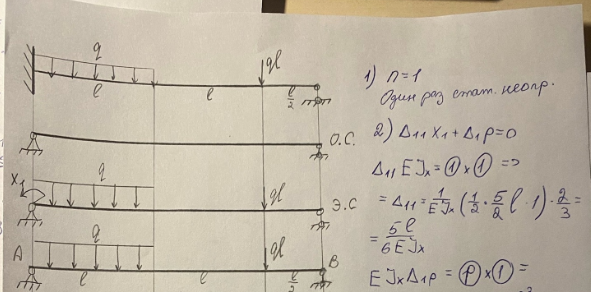 q
ql
l
l
l/2
О.С.
X₁
q
ql
Э.С
A
q
ql
B
l
l
l/2
1) n=1
Один раз стат. неопр.
2) Δ₁₁X₁+Δ₁p=0
Δ₁₁EJₓ=①×① =>
=Δ₁₁=1/EJₓ(1/2·5/2 l·1)·2/3=
=5l/6EJₓ
EJₓΔ₁p=Ⓟ×①=